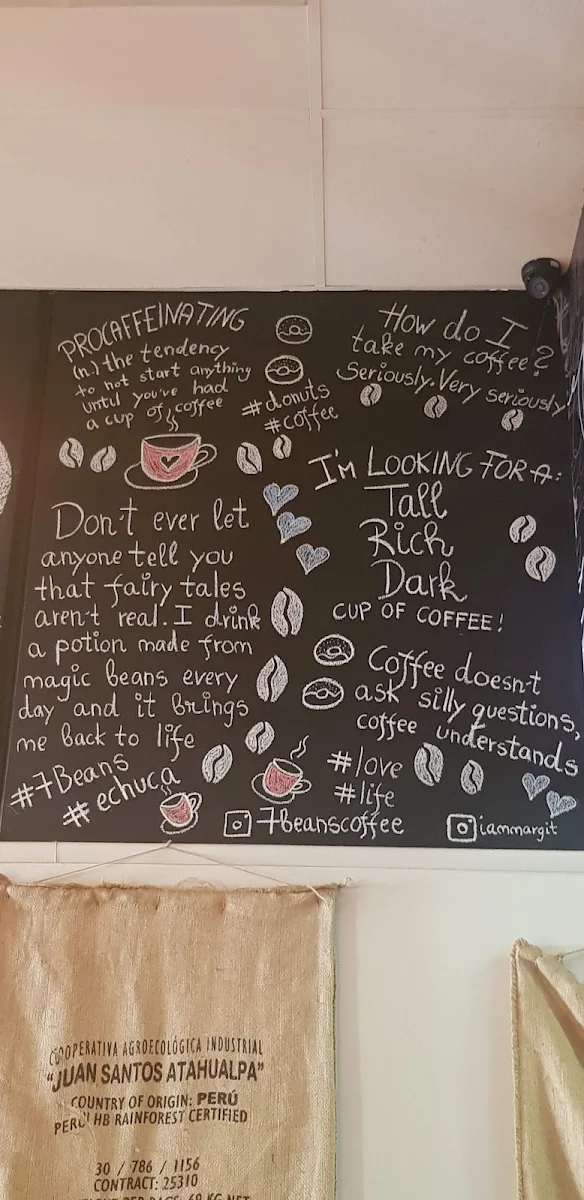 PROCAFFEINATING
(n.) the tendency
to not start anything
until you've had
a cup of coffee
#donuts
#coffee
How do I
take my coffee?
Seriously. Very seriously
I'M LOOKING FOR A:
Tall
Rich
Dark
CUP OF COFFEE!
Don't ever let
anyone tell you
that fairy tales
aren't real. I drink
a potion made from
magic beans every
day and it brings
me back to life
#7Beans
#echuca
Coffee doesn't
ask silly questions,
coffee understands
#love
#life
7beanscoffee
iammargit
COOPERATIVA AGROECOLÓGICA INDUSTRIAL
"JUAN SANTOS ATAHUALPA"
COUNTRY OF ORIGIN: PERÚ
PERU HB RAINFOREST CERTIFIED
30 / 786 / 1156
CONTRACT: 25310
PER BAGS: 69 KG NET